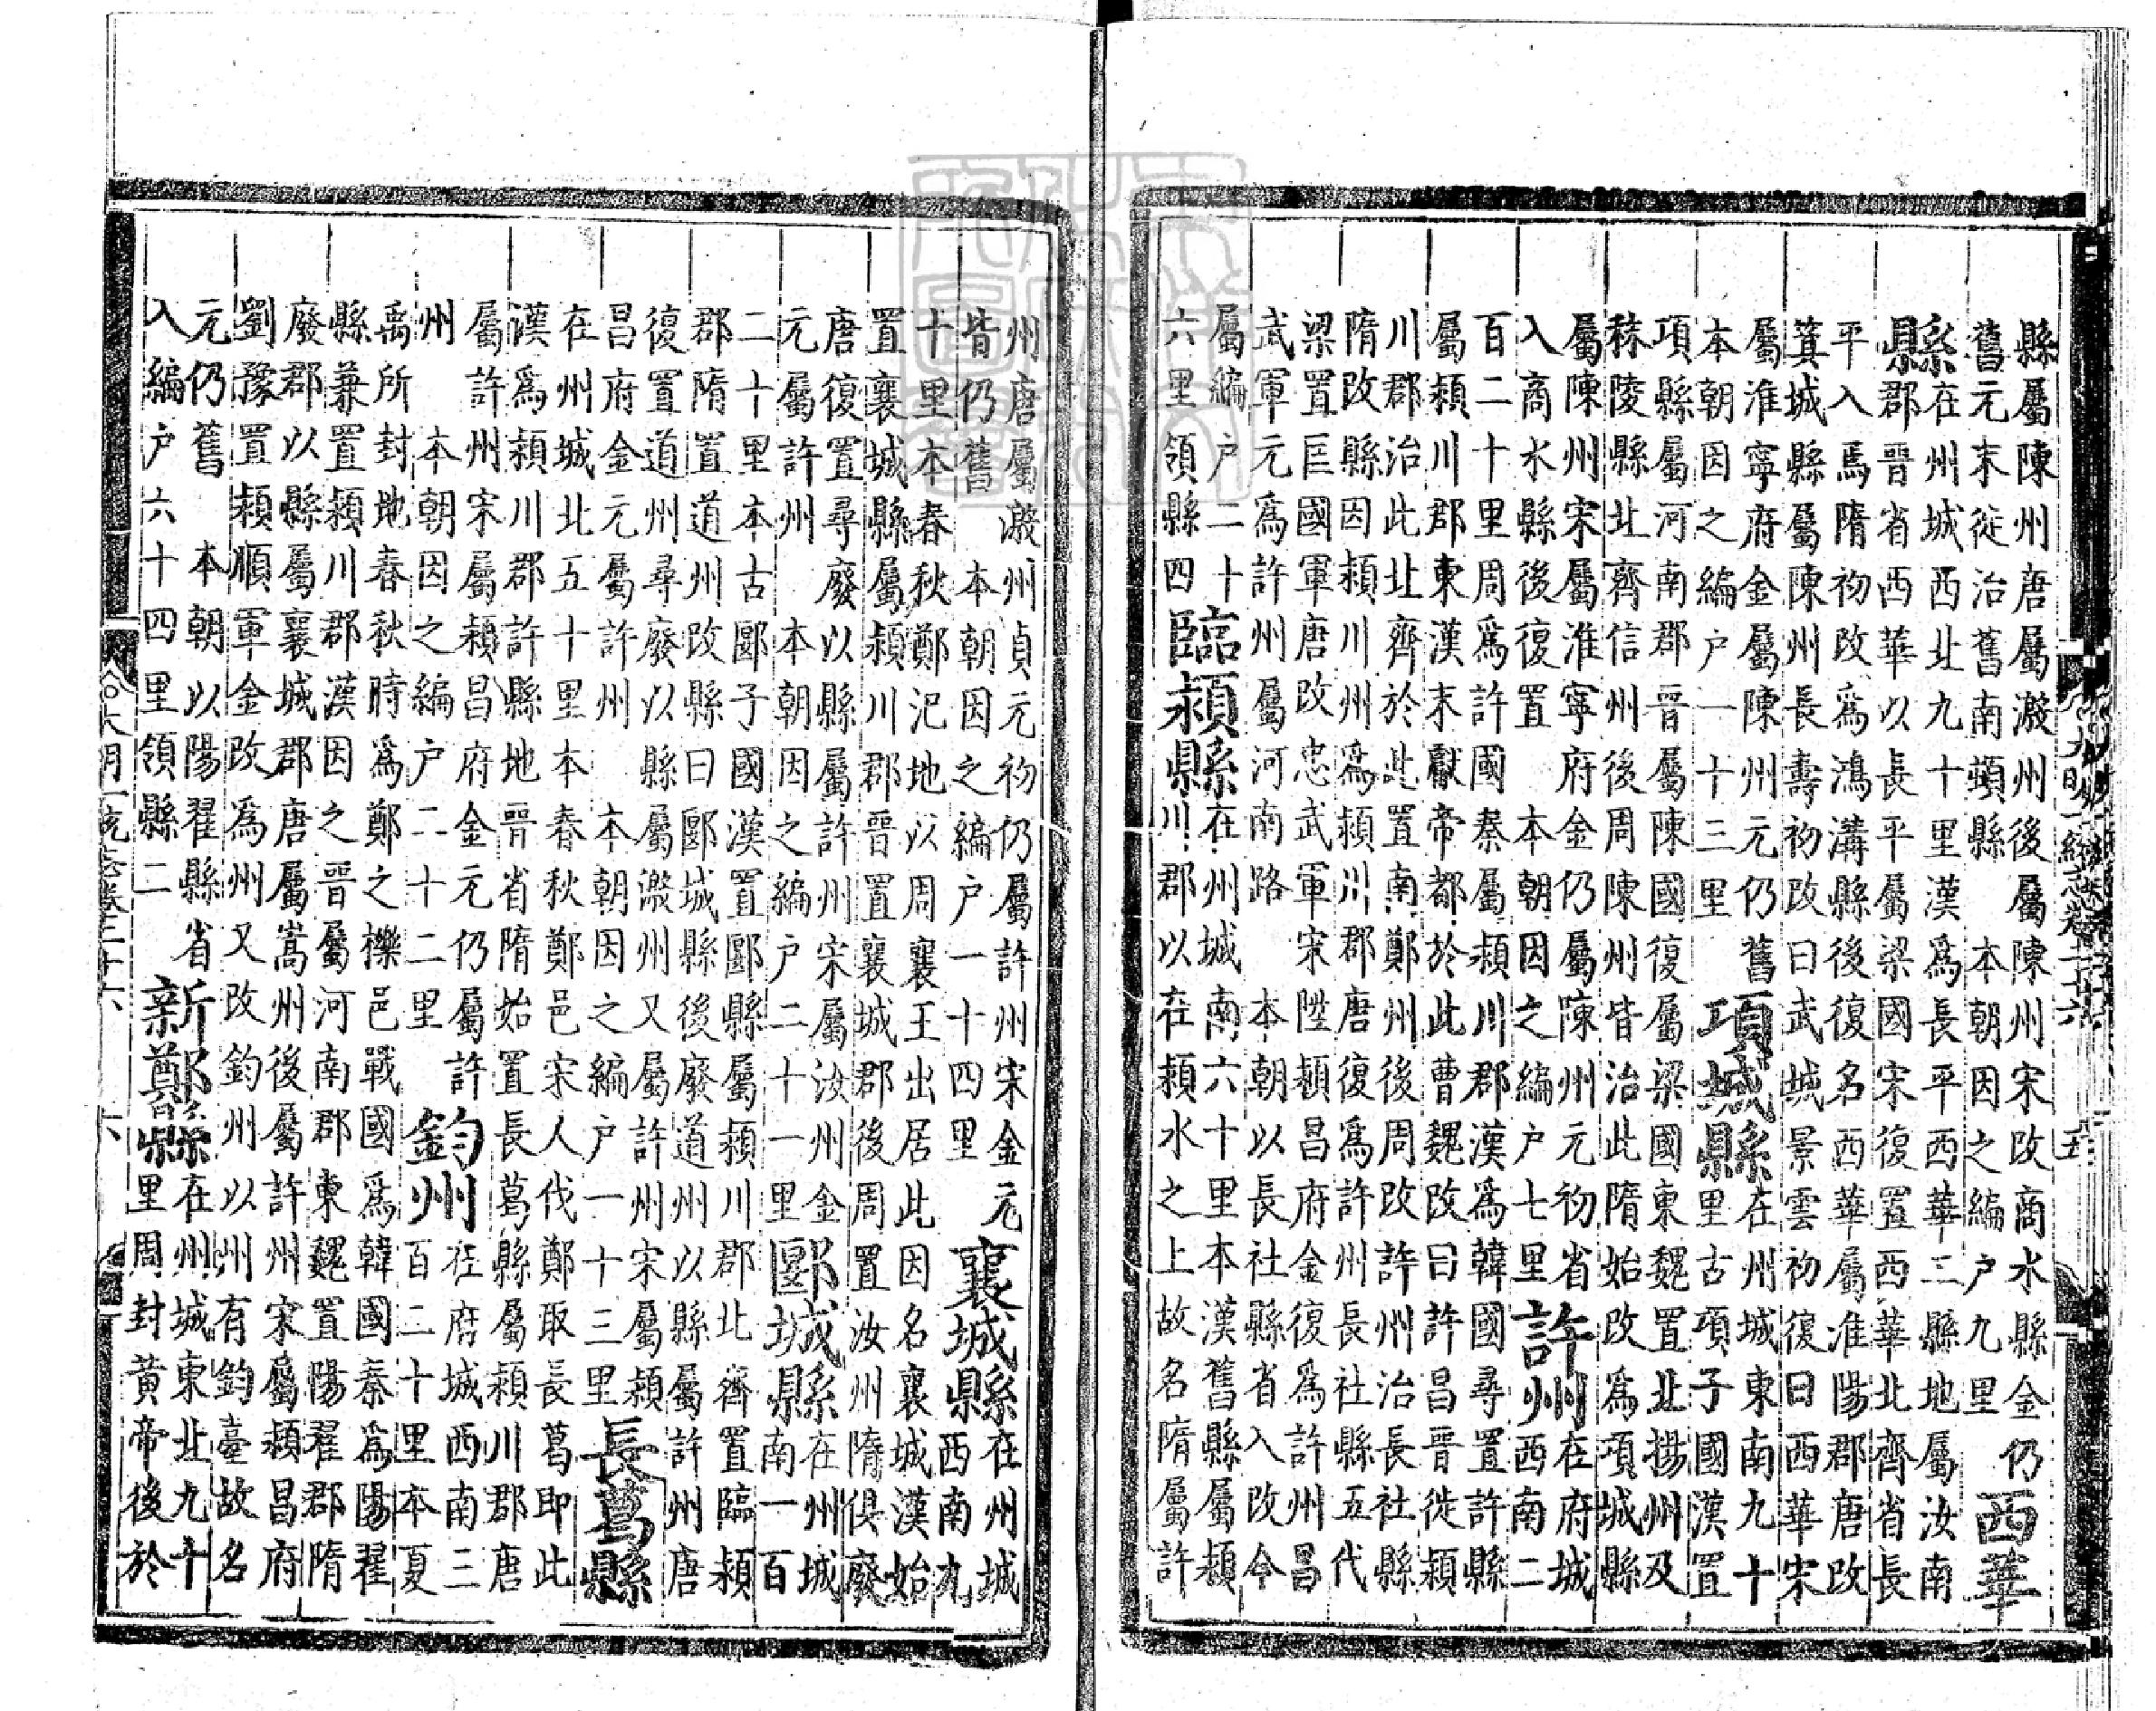 縣屬陳州唐屬溵州後屬陳州宋改商水縣金仍
舊元末徙治舊南頓縣 本朝因之編户九里
西華
縣
在州城西北九十里漢爲長平西華二縣地屬汝南
郡晉省西華以長平屬梁國宋復置西華北齊省長
平入焉隋初改爲鴻溝縣後復名西華屬淮陽郡唐改
箕城縣屬陳州長壽初改曰武城景雲初復曰西華宋
屬淮寧府金屬陳州元仍舊
本朝因之編户一十三里
項城縣
在州城東南九十
里古項子國漢置
項縣屬河南郡晉屬陳國復屬梁國東魏置北揚州及
秣陵縣北齊信州後周陳州皆治此隋始改爲項城縣
屬陳州宋屬淮寧府金仍屬陳州元初省
入商水縣後復置 本朝因之編户七里
許州
在府城
西南二
百二十里周爲許國秦屬頴川郡漢爲韓國尋置許縣
屬頴川郡東漢末獻帝都於此曹魏改曰許昌晉徙頴
川郡治此北齊於此置南鄭州後周改許州治長社縣
隋改縣因頴川州爲頴川郡唐復爲許州長社縣五代
梁置匡國軍唐改忠武軍宋陞頴昌府金復爲許州昌
武軍元爲許州屬河南路 本朝以長社縣省入改今
屬編户二十
六里領縣四
臨頴縣
在州城南六十里本漢舊縣屬頴
川郡以在頴水之上故名隋屬許
大明一統志卷二十六 五
州唐屬溵州貞元初仍屬許州宋金元
皆仍舊 本朝因之編户一十四里
襄城縣
在州城
西南九
十里本春秋鄭氾地以周襄王出居此因名襄城漢始
置襄城縣屬頴川郡晉置襄城郡後周置汝州隋俱廢
唐復置尋廢以縣屬許州宋屬汝州金
元屬許州 本朝因之編户二十一里
郾城縣
在州城
南一百
二十里本古郾子國漢置郾縣屬頴川郡北齊置臨頴
郡隋置道州改縣曰郾城縣後廢道州以縣屬許州唐
復置道州尋廢以縣屬溵州又屬許州宋屬頴
昌府金元屬許州 本朝因之編户一十三里
長葛縣
在州城北五十里本春秋鄭邑宋人伐鄭取長葛即此
漢爲頴川郡許縣地晉省隋始置長葛縣屬頴川郡唐
屬許州宋屬頴昌府金元仍屬許
州 本朝因之編户二十二里
鈞州
在府城西南三
百二十里本夏
禹所封地春秋時爲鄭之櫟邑戰國爲韓國秦爲陽翟
縣兼置頴川郡漢因之晉屬河南郡東魏置陽翟郡隋
廢郡以縣屬襄城郡唐屬嵩州後屬許州宋屬頴昌府
劉豫置頴順軍金改爲州又改鈞州以州有鈞臺故名
元仍舊 本朝以陽翟縣省
入編户六十四里領縣二
新鄭縣
在州城東北九十
里周封黄帝後於
大明一統志卷二十六 六